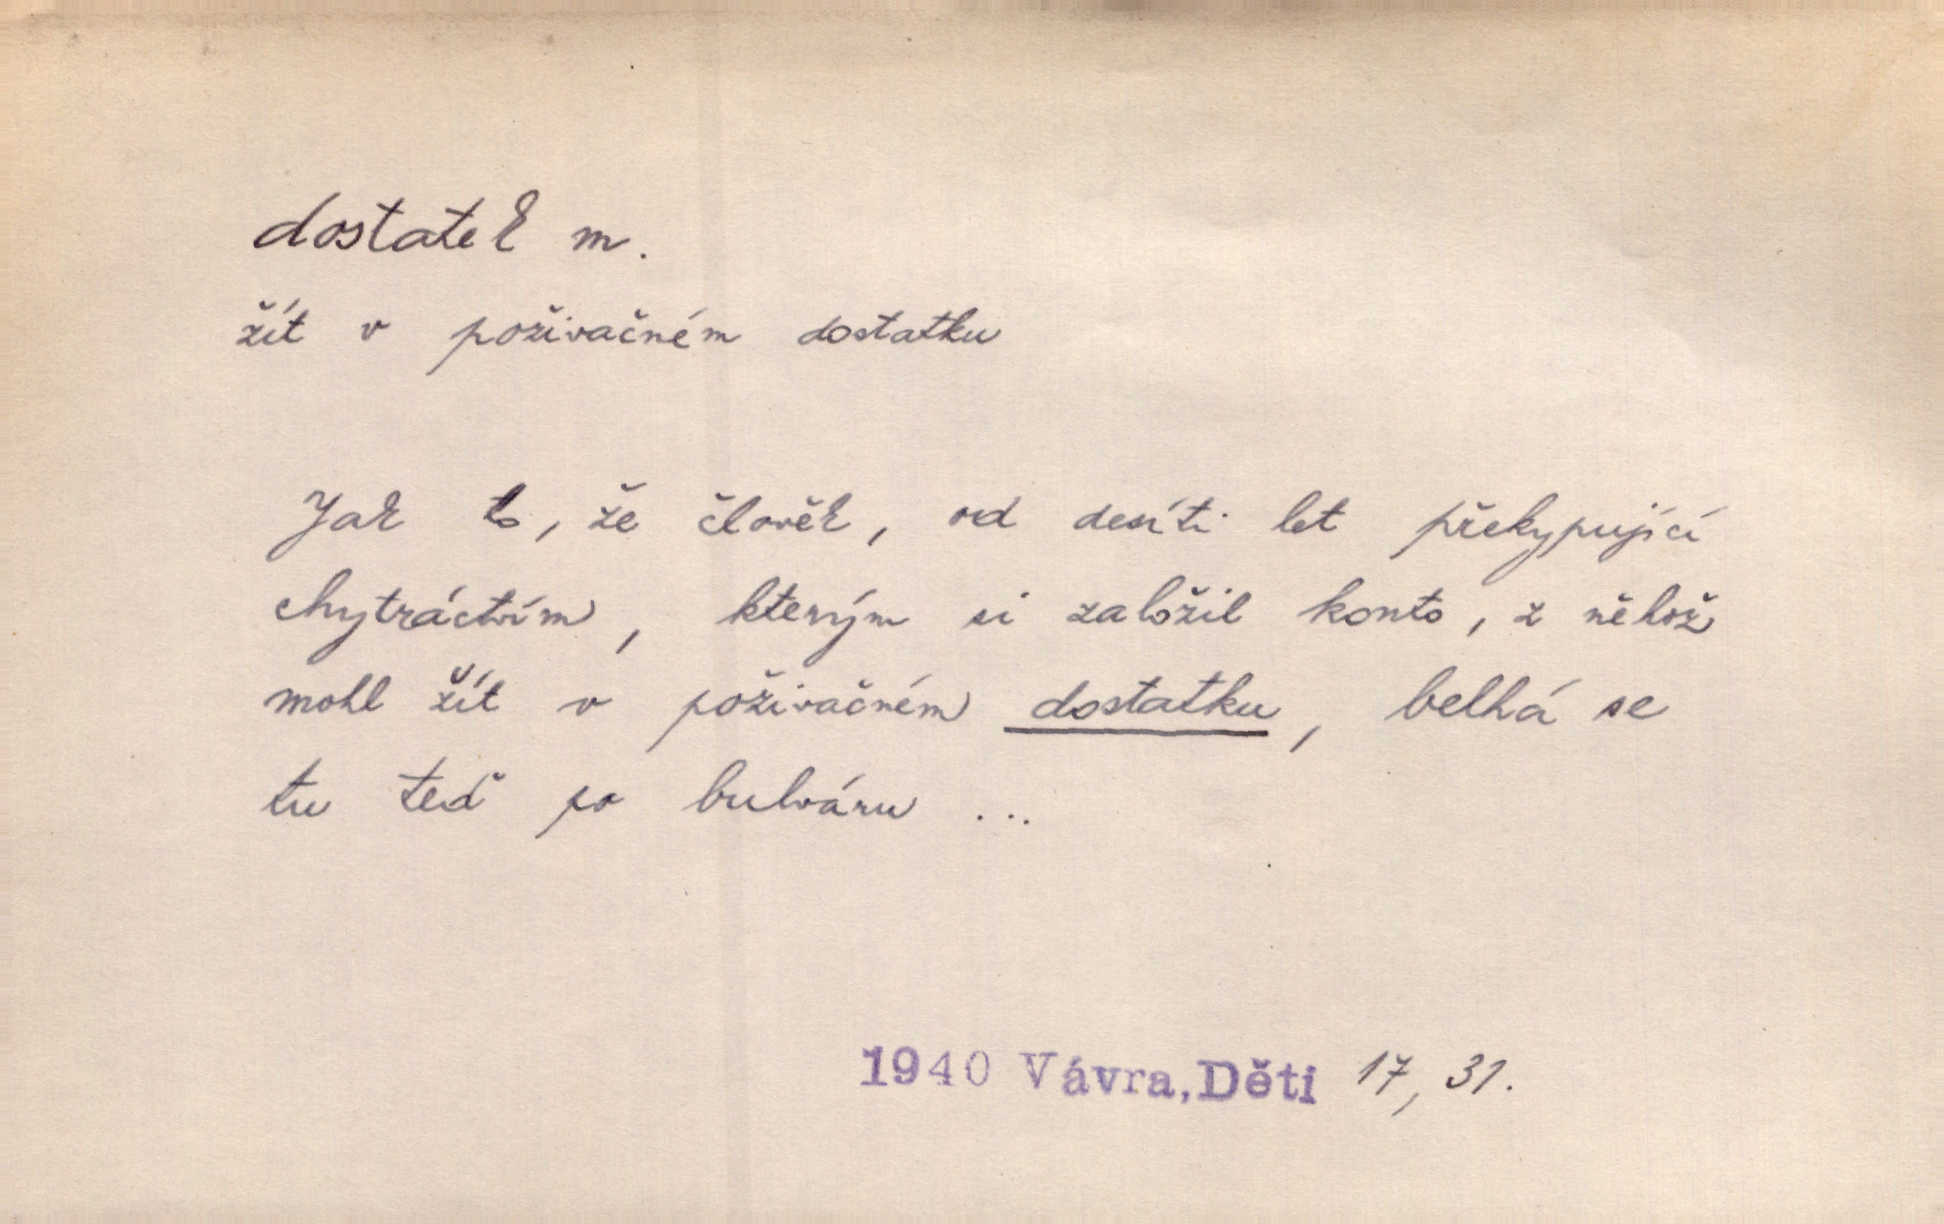 dostatek m.
žít v poživačném dostatku
Jak to, že člověk, od desíti let překypující
chytráctvím, kterým si založil konto, z něhož
mohl žít v poživačném dostatku, belhá se
tu teď po bulváru ...
1940 Vávra, Děti 17, 31.